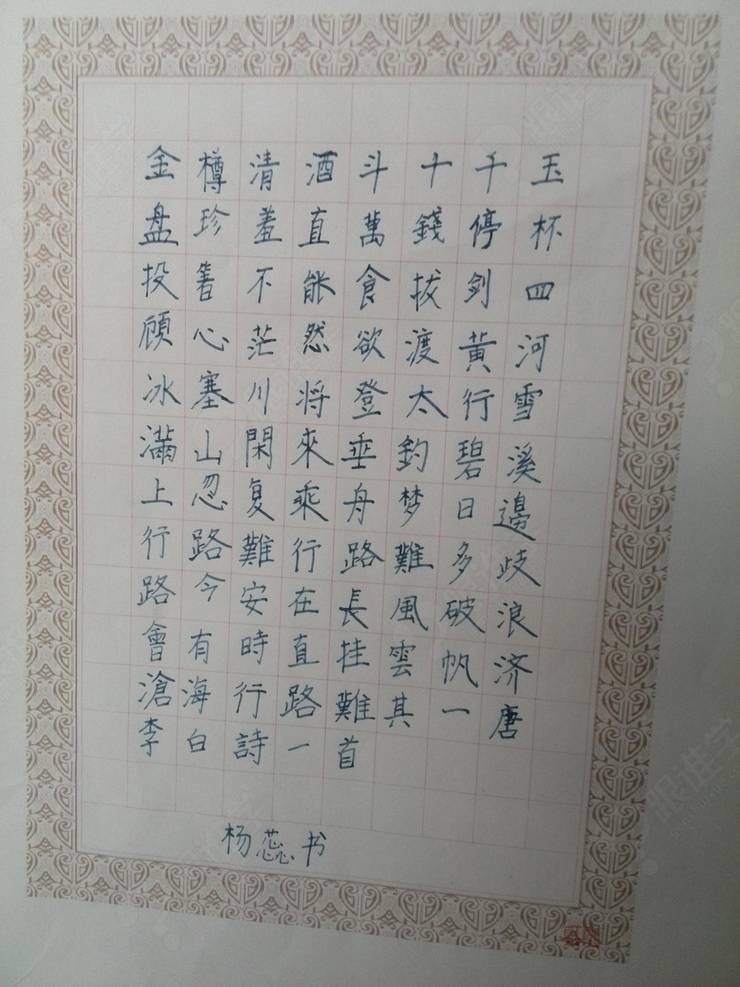 金樽清酒斗十千玉
盘珍羞直萬錢停杯
投箸不能食拔剑四
顾心茫然欲渡黄河
冰塞川将登太行雪
滿山閑來垂釣碧溪
上忽复乘舟梦日邊
行路難行路難多歧
路今安在長風破浪
會有時直挂雲帆济
滄海行路難其一唐
李白詩一首
杨蕊书